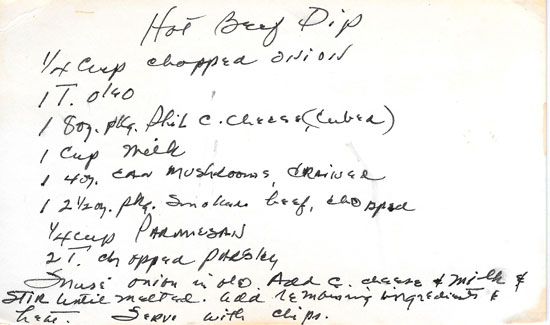 Hot Beef Dip
1/4 Cup chopped onion
1 T. oleo
1 8oz. pkg. Phil C. cheese (cubed)
1 Cup milk
1 4oz. can mushrooms, drained
1 2 1/2oz. pkg. smoked beef, chopped
1/4 cup Parmesan
2 T. chopped parsley
onion in oleo. Add C. cheese & milk &
stir until melted. add remaining ingredients &
heat. Serve with chips.